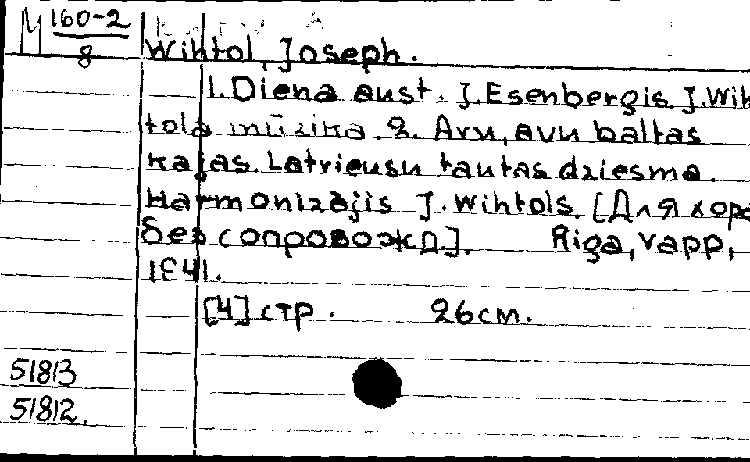 М 160-2
8
Wihtol, Joseph.
1. Diena aust. J. Esenbergis J. Wih
tola mūzika. 2. Avu, avu baltas
kajas. Latvieusu tautas dziesma.
Harmonizējis J. Wihtols. [Для хора
без сопровожд.]. Riga, Vapp,
1941.
[4] стр. 26 см.
51813
51812.